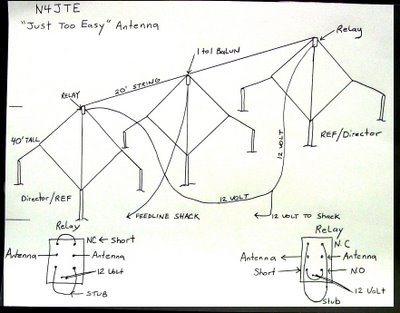 N4JTE
"Just Too Easy" Antenna
Relay
1 to 1 BALUN
20' STRING
RELAY
40' TALL
12 VOLT
REF/Director
12 VOLT
Director/REF
FEEDLINE SHACK
12 VOLT TO SHACK
Relay
NC Short
Antenna
Antenna
12 Volt
STUB
Relay
N.C
Antenna
Antenna
Short
N.O
12 Volt
Stub